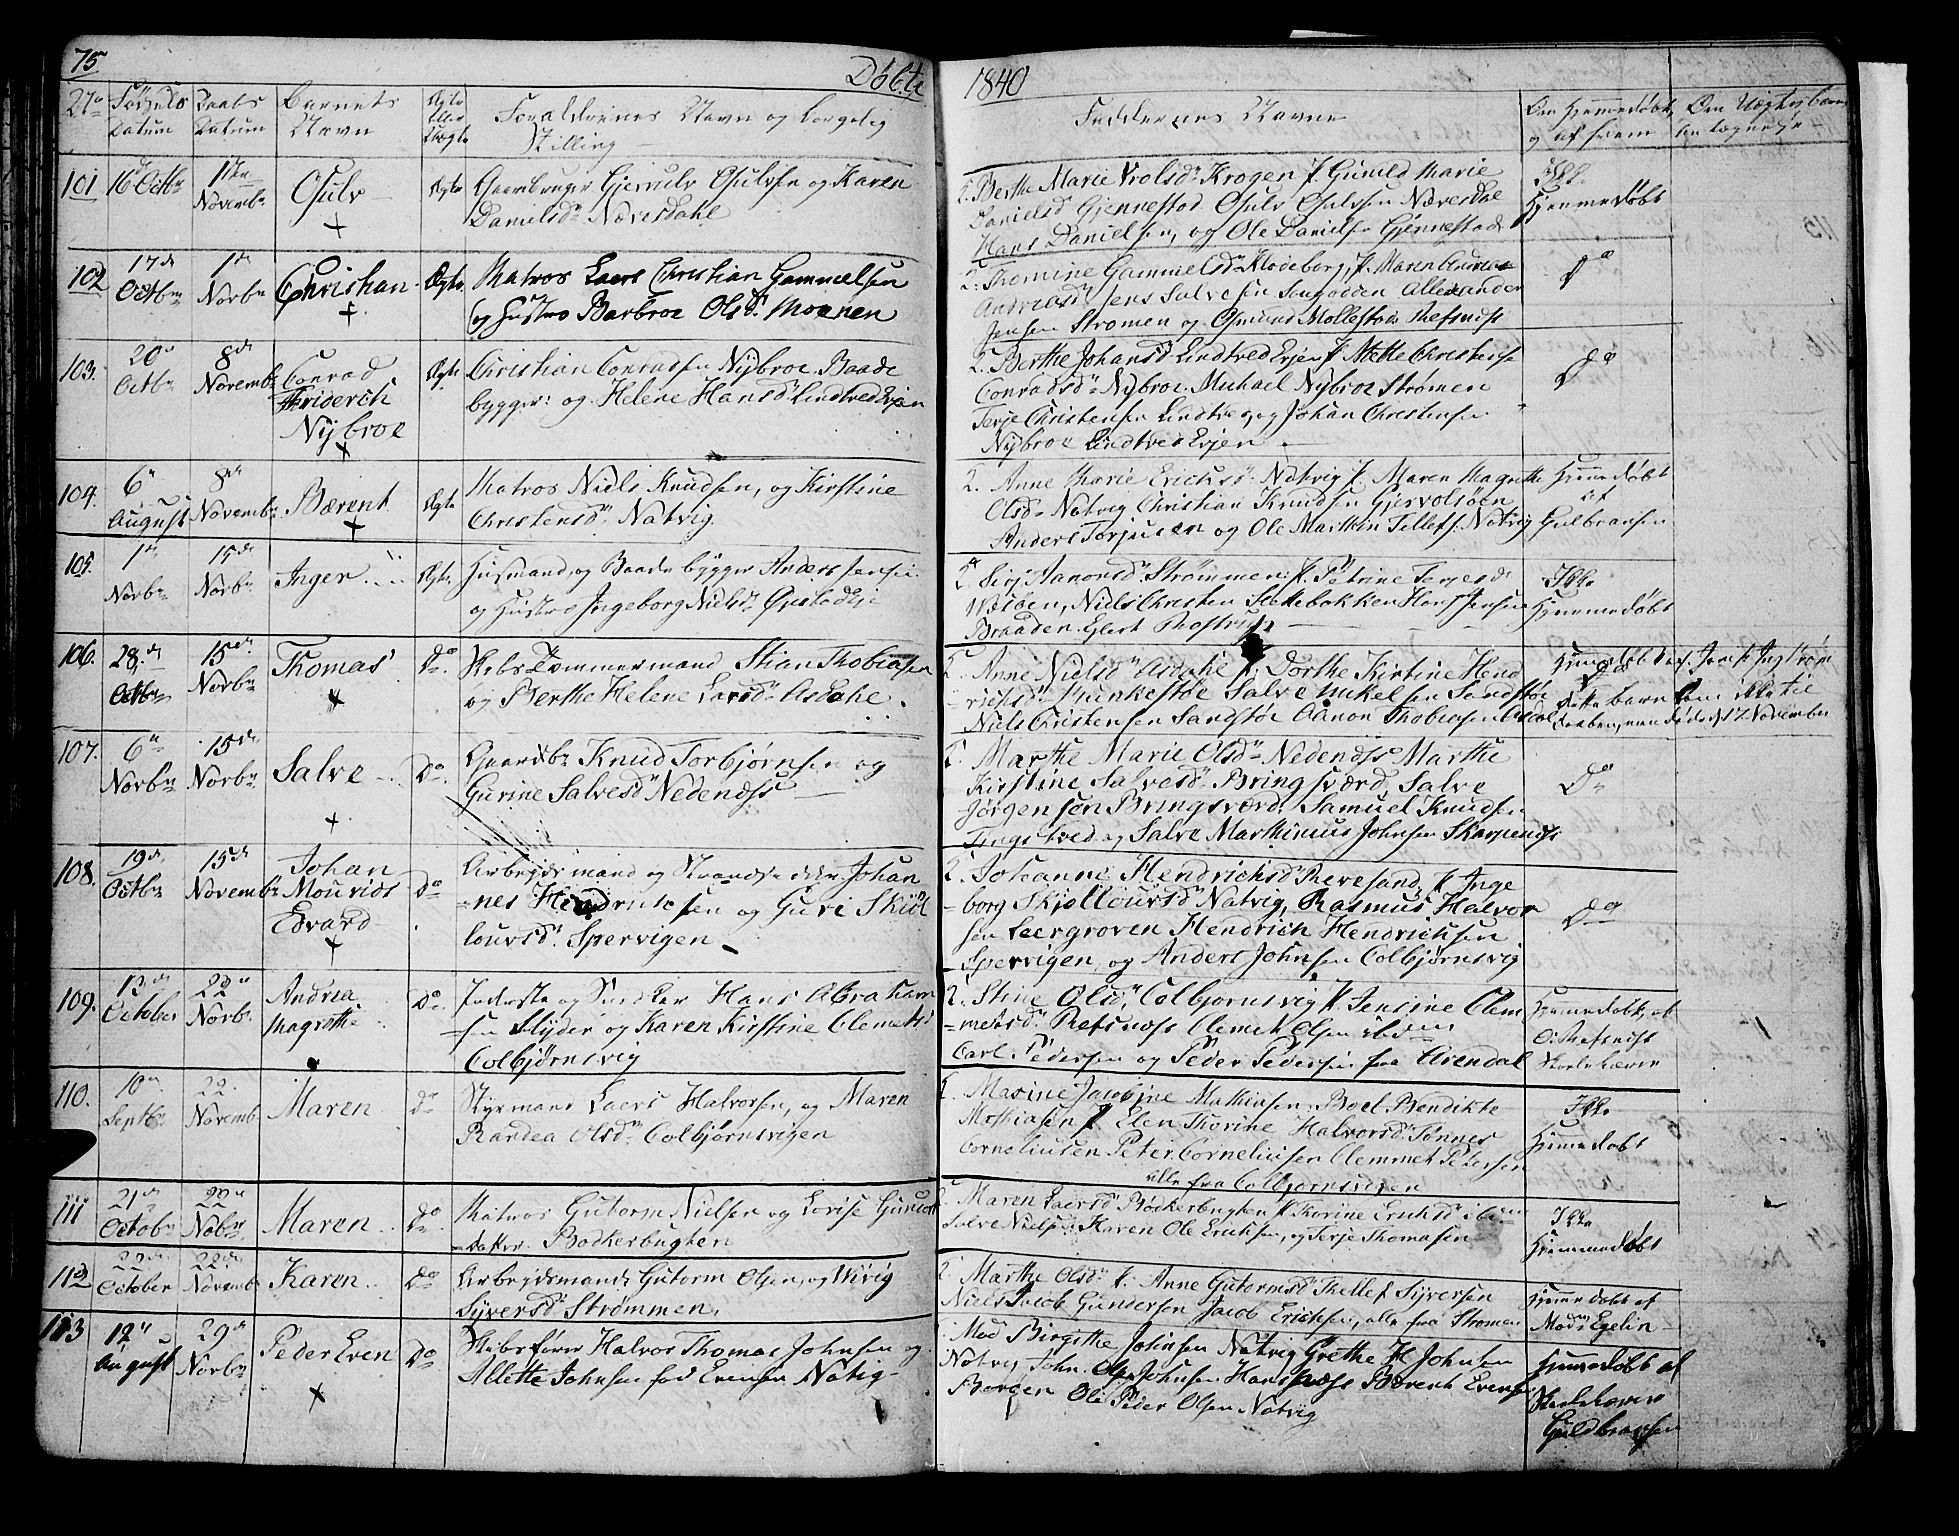 75
Döbte
1840
No
Fødsels Datum
Daabs Datum
Barnets Navn
Ægte eller Uægte
Foraldrenes Navn og borgelig Stilling
Faddernes Navne
Om Hjemmedøbt og af hvem
101
16 Octbr
1ste Novembr
Osulv
Ægte
Gaardbruger Gjerulv Osulvsen og Karen
Danielsdr Næversdahl
Berthe Marie Trolsdr Krogen J. Gunild Marie
Danielsd Gjennestad Osulv Osulvsen Næversdal
Hans Danielsen, og Ole Danielsen Gjennestad
Ikke
Hjemmedøbt
102
17de Octbr
1ste Novbr
Christian
Ægte
Matros Laers Christian Gammelsen
og Hustro Barbroe Olsdr Moenen
2. Thomine Gammelsdr Klodeborg, J. Maren Andrea
Andreasdr Jens Salvesen Songodden Allexander
Jensen Strømen og Osmund Mollestad Refsnæss
Do
103.
20 Octbr
8de Novembr
Conrad
Friderich
Nÿbroe
Ægte
Christian Conradsen Nÿbroe Baade
bygger: og Helene Hansdr Lindtved Eyen
2. Berthe Johansdr Lindtved Eyen J. Mette Christense
Conradsdr Nÿbroe Michael Nÿbroe Strømen
Terje Christensen Lindtved, og Johan Christensen
Nÿbroe Lindtved Eyen
Do
104.
6te August
8de Novembr
Bærent
Ægte
Matros Niels Knudsen, og Kirstine
Christensdr Natvig
2. Anne Marie Ericksdr Natvig J. Maren Magrethe
Olsdr Natvig Christian Knudsen Gjervolsøen
Anders Torjusen og Ole Marthin Tellefs. Natvig
Hjemmedøbt
af
Gulbransen
105.
1ste Novbr
15de Novbr
Inger
Ægte
Husmand, og Baadebygger Anders Jensen
og Hustro Ingeborg Nielsdr
2. Siri Aanonsdr Strømmen: J. Petrine Terjesdr
Niels Christen Slettebokken Hans Jensen
Braaden Eglert
Ikke
Hjemmedøbt
106.
28de Octbr
15de Novbr
Thomas
Do
Skibs Tømmermand Stian Thobiasen
og Berthe Helene Larsdr Asdahl
2. Anne Nielsdr Asdahl J. Dorthe Kirstine Hend
richsdr Munkestøe Salve Mikelsen Sandstøe
Niels Christensen Sandstøe Aanon Thobiasen Asdal
Do
Dette barn kom ikke til
Daaben, men døde d 17 November
107.
6te Novbr
15de Novbr
Salve
Do
Gaardbr Knud Torbjørnsen og
Gurine Salvesdr Nedenæss
2. Marthe Marie Olsdr Nedenæss Marthe
Kirstine Salvesdr Bringsværd, Salve
Jørgensen Bringsværd. Samuel Knudsen
Tingstved og Salve Marthinius Johnsen Skarpenæss
Do
108.
19de Octbr
15de Novembr
Johan
Mouvids
Edvard
Do
Arbeydsmand og Johan
nes Hendrichsen og Guri Skiöl
louvsdr Spervigen
2. Johanne Hendrichsdr Revesand, J. Inge
borg Skjøllouvsdr Natvig, Rasmus Halvor
sen Leergroven Hendrich Hendricksen
Spervigen, og Anders Johnsen Colbjørnsvig
Do
109.
13de October
22de Novbr
Andrea
Magrethe
Do
Inderste og Snedker Hans Abraham
sen Slyder og Karen Kirstine Clemetsdr
Colbjørnsvig
2. Stine Olsdr Colbjørnsvig J. Jensine Clem
metsdr Refsnæss Clemet Olsen ibdem
Carl Pedersen og Peder Pedersen fra Arendal
Hjemmedøbt af
O: Refsnæss
Skoleholder
110.
10de Septbr
22 Novembr
Maren
Do
Styrmand Laers Halvorsen, og Maren
Randea Olsdr Colbjørnsvigen
2. Marine Jacobine Mathiasen, Boel Bendikte
Mathiasen J. Elen Thorine Halvorsdr Tønnes
Corneliusen Peter Corneliusen Clemmet Petersen
alle fra Colbjørnsvigen
Ikke
Hjemmedøbt
111
21de Octobr
22de Nobr
Maren
Do
Matros Gutorm Nielsen og Lovise Gunul
datter Bodkerbugten
2. Maren Laersdr Bødkerbugten J. Thorine Ericksdr ibdem
Salve Nielsen Haven Ole Ericksen, og Terje Thomasen
Ikke
Hjemmedøbt
112
22de October
22de Novembr
Karen
Do
Arbeydsmand Gutorm Olsen, og Wivig
Siversdr Strømmen.
2. Marthe Olsdr J. Anne Gutormsdr Thellef Syversen
Niels Jacob Gundersen Jacob Ericksen, alle fra Strømen
Hjemedøbt af
Modm Egelin
113
12te August
29de Novbr
Peder Even
Do
Skibsfører Halvor Thomas Johnsen og
Allette Johnsen fød Evensen Natig
Mad Birgithe Johnsen Natvig Grethe H Johnsen
Natvig John Olsen Johnsen Hans Næss Bærent Evensen
Borgen Ole Peder Olsen Natvig
Hjemedøbt af
Skoleholder
Guldbransen